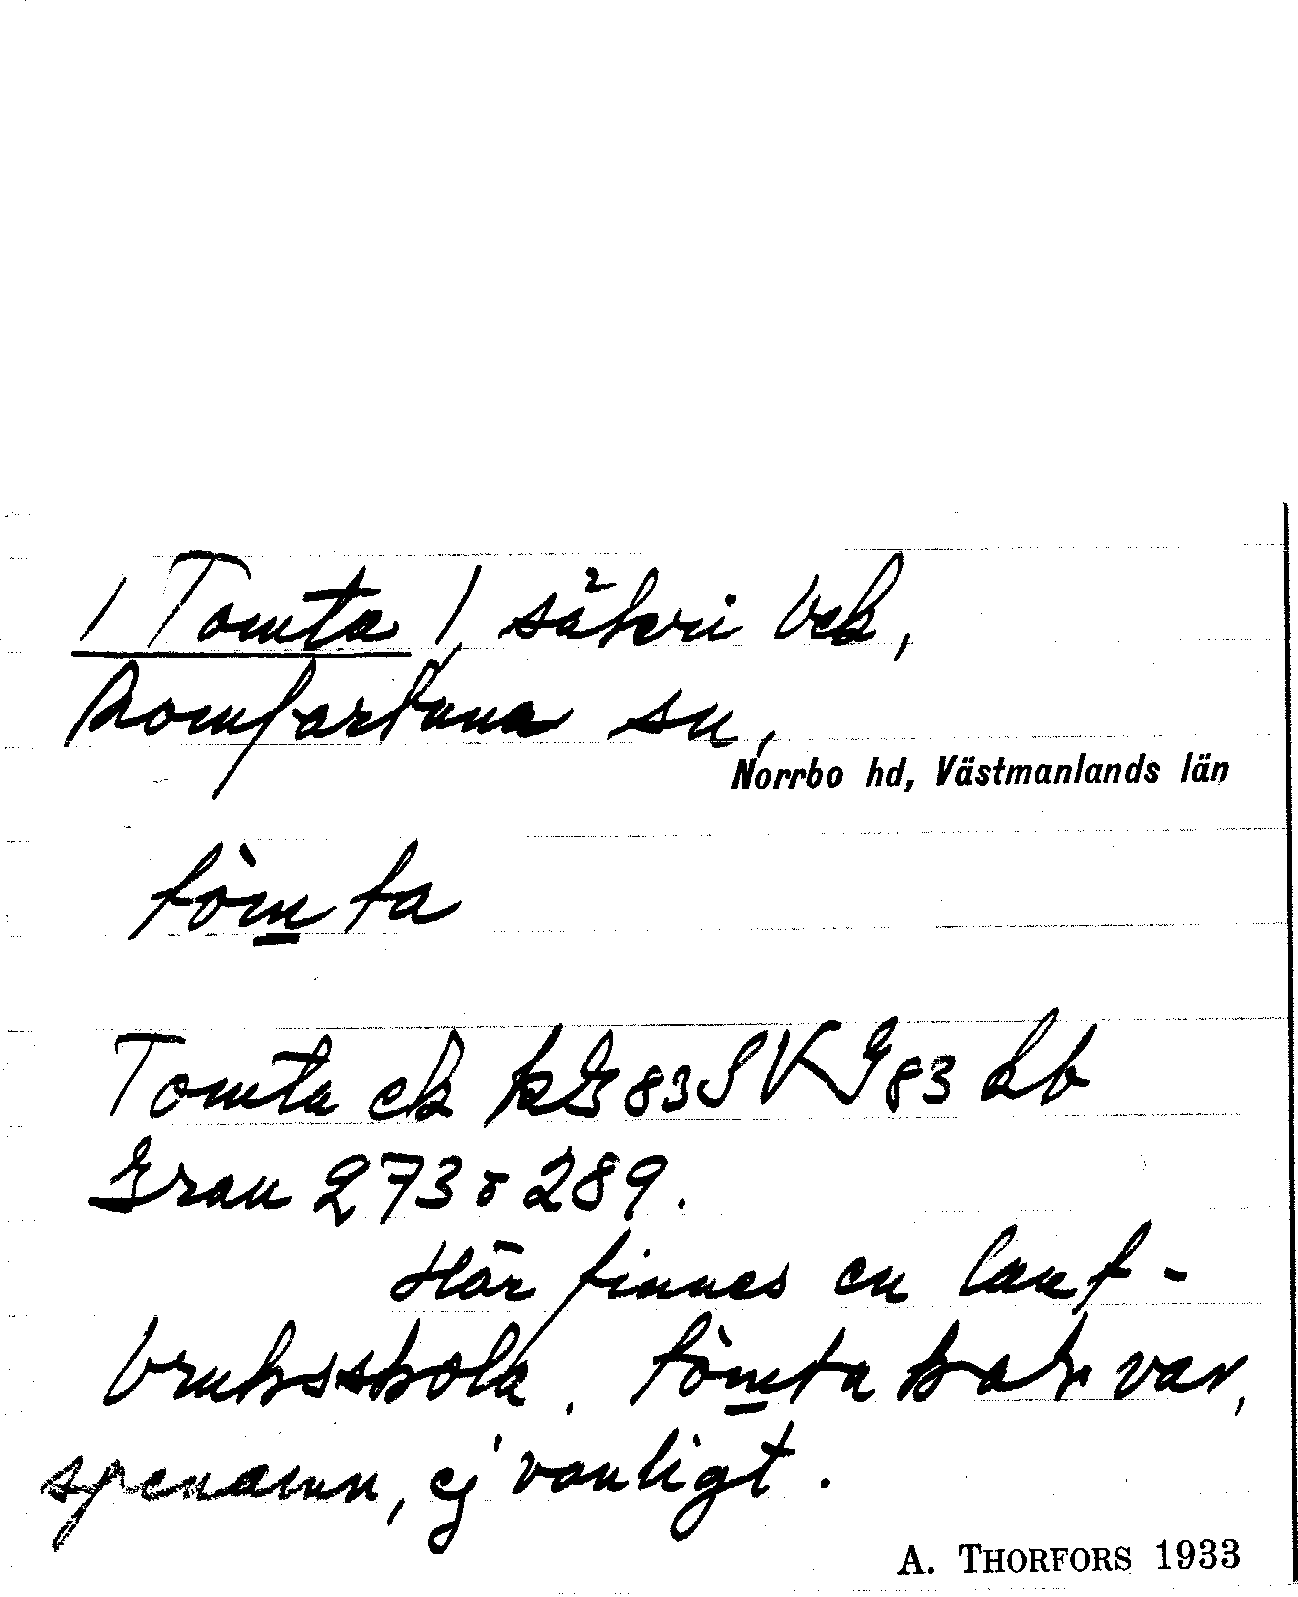 / Tomta /, säteri bek,
Romfartuna sn,
Norrbo hd, Västmanlands län
tòm̲ta
Tomta ek kG 83 SVK G 83 Lb
Gran 273 o 289.
Här finnes en lant-
bruksskola. tòm̲ta
spenamn, ej vanligt.
A. THORFORS 1933